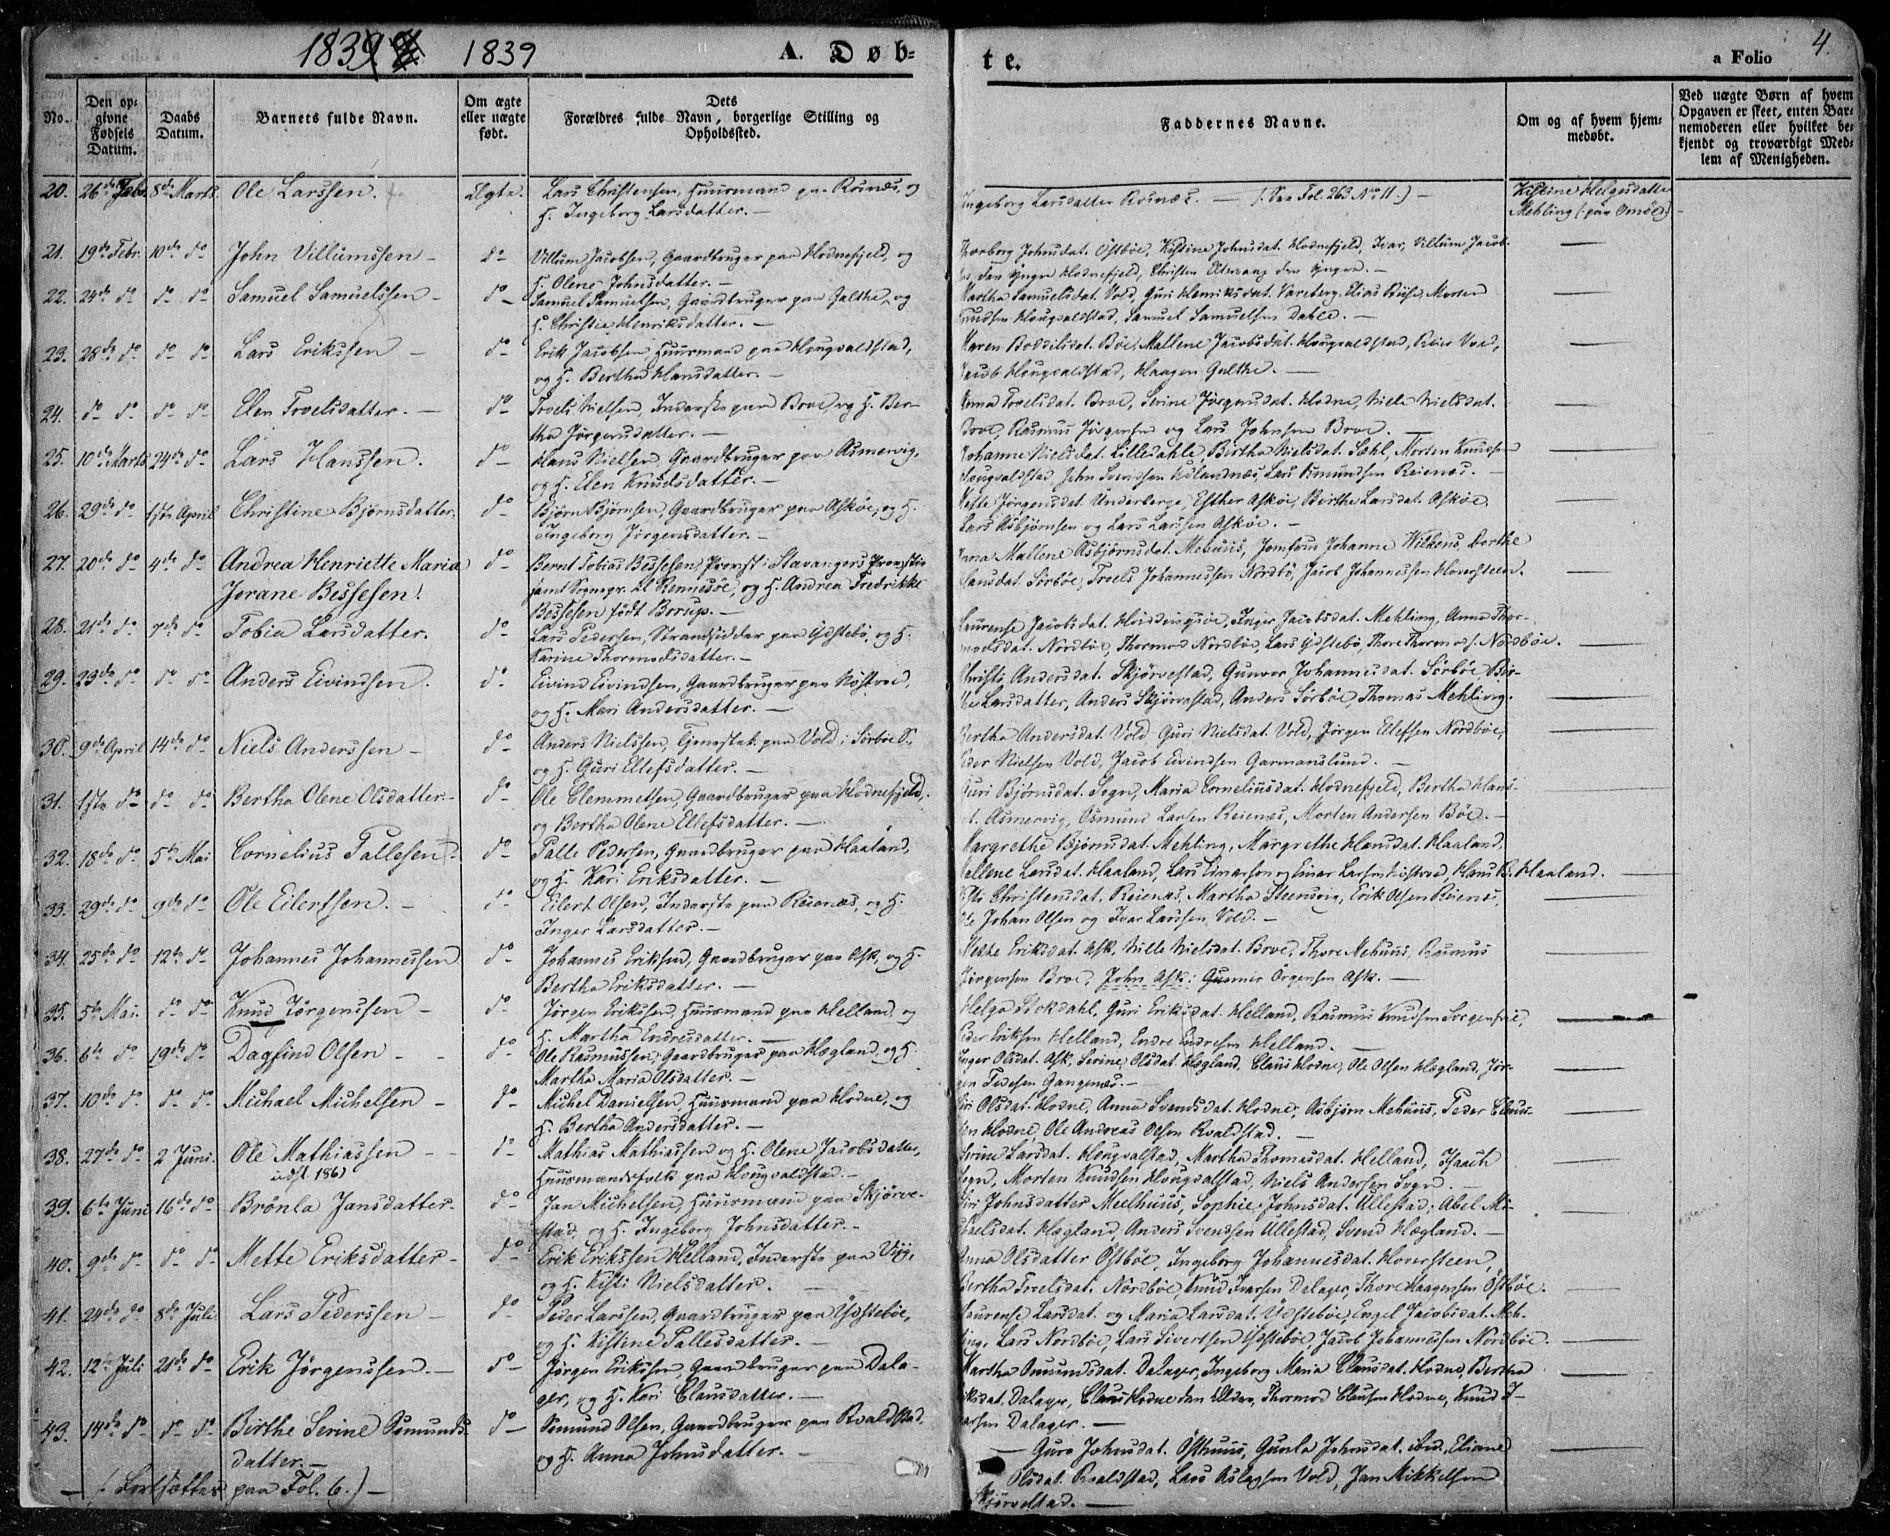 1839 1839 A. Døb-
te. a Folio 4.
No.
Den op-
givne
Fødsels
Datum.
Daabs
Datum.
Barnets fulde Navn.
Om ægte
eller uægte
født.
Dets
Forældres fulde Navn, borgerlige Stilling og
Opholdssted.
Faddernes Navne.
Om og af hvem hjem-
medøbt.
Ved uægte Børn af hvem
Opgaven er skeet, enten Bar-
nemoderen eller hvilket be-
kjendt og troværdigt Med-
lem af Menigheden.
20. 26de Febr. 8de Marts. Ole Larssen. Ægte. Lars Christensen, Huusmand paa Rosnæs, og
H. Ingeborg Larsdatter. —
Ingeborg Larsdatter Rosnæs. — (See Fol. 263 No 11.) —
Kistine Helgesdatter
Mehling (paa Omøe)
21. 19de Febr. 10de do John Villumssen — do Villum Jacobsen, Gaardbruger paa Hodnefjeld, og
H. Olene Johnsdatter. —
Johnsdat. Østbøe, Kistine Johnsdat. Hodnefjeld, Ivar, Villum Jacob-
den Yngre Hodnefjeld, Christen Eltervaag den Yngre. —
22. 24de do do do Samuel Samuelssen — do Samuel Samuelsen, Gaardbruger paa Galthe, og
H. Christie Henriksdatter. —
Martha Samuelsdat. Vold, Guri Henriksdat. Vareberg, Elias Morten
Knudsen Hougvaldstad, Samuel Samuelsen Dahle. —
23. 28de do do do Lars Erikssen — do Erik Jacobsen, Huusmand paa Hougvaldstad,
og H. Bertha Hansdatter. —
Karen Boddilsdat. Bøe, Mallene Jacobsdat. Hougvaldstad,
Jacob Hougvaldstad, Haagen Galthe. —
24. do do do do Elen Troelsdatter. — do Troels Nielsen, Inderste paa Broe, og H. Ber-
tha Jørgensdatter. —
Anna Troelsdat. Broe, Serine Jørgensdat. Hodne, Nille Nielsdat.
Broe, Rasmus Jørgensen og Lars Johnsen Broe. —
25. 10de Marts 24de do Lars Hanssen. do Hans Nielsen, Gaardbruger paa Asmervig,
og H. Elen Knudsdatter. —
Johanne Nielsdat. Lilledahle, Bertha Nielsdat. Sæhl, Morten Knudsen
Hougvaldstad, John Svendsen Lars Osmundsen Reienæs. —
26. 29de do 1ste April Christine Bjørnsdatter. do Bjørn Bjørnsen, Gaardbruger paa Askøe, og H.
Ingeborg Jørgensdatter. —
Mette Jørgensdat. Underberge, Esther Askøe, Birthe Larsdat. Askøe,
Lars Asbjørnsen og Lars Larssen Askøe. —
27. 20de do 4de do Andrea Henriette Maria do Bernt Tobias Bessesen, Provst i Stavangers Provstie
Jorane Bessesen. samt Sognepr. til Rennesøe, og H. Andrea Fredrikke
Bessesen født Borup. —
Anna Mallene Asbjørnsdat. Mehuus, Jomfru Johanne Wilkens, Dorthe
Hansdat. Sørbøe, Troels Johannessen Nordbø, Jacob Johannessen Hoversteen.
28. 21de do 7de do Tobia Larsdatter. do Lars Pedersen, Strandsidder paa Ydstebø, og H.
Karine Thormodsdatter. —
Laurense Jacobsdat. Inger Jacobsdat. Mehling, Anna Thor-
modsdat. Nordbøe, Thormod Nordbøe, Lars Ydstebø, Thore Thormods. Nordbøe.
29. 23de do do do Anders Eivindsen. do Eivind Eivindsen, Gaardbruger paa Nøstvoe,
og H. Mari Andersdatter. —
Christi Andersdat. Skjørvestad, Gunvor Johannesdat. Sørbøe, Bir-
the Larsdatter, Anders Skjørvestad, Anders Sørbøe, Thomas Mehling.
30. 9de April 14de do Niels Anderssen — do Anders Nielssen, Tjenestek. paa Vold i Sørbøe S.,
og H. Guri Ellefsdatter. —
Bertha Andersdat. Vold, Guri Nielsdat. Vold, Jørgen Ellefsen Nordbøe,
Peder Nielsen Vold, Jacob Eivindsen Garmanslund. —
31. 1ste do do do Bertha Olene Olsdatter. — do Ole Clemmetsen, Gaardbruger paa Hodnefjeld,
og Bertha Olene Ellefsdatter. —
Guri Bjørnsdat. Sogn, Maria Corneliusdat. Hodnefjeld, Bertha Hans-
t. Asmervig, Osmund Larsen Reienæs, Morten Andersen Bøe. —
32. 18de do 5te Mai Cornelius Tallesen do Talle Pedersen, Gaardbruger paa Haaland,
og H. Kari Eriksdatter. —
Margrethe Bjørnsdat. Mehling, Margrethe Hansdat. Haaland,
Mallene Larsdat. Haaland, Lars Einarsen og Einar Larsen Hans Haaland.
33. 29de do 9de do Ole Eilertsen. — do Eilert Olsen, Inderste paa Reienæs, og H.
Inger Larsdatter. —
Christensdat. Reienæs, Martha Steensvig, Erik Olsen Reienæs,
Johan Olsen og Ivar Larssen Vold. —
34. 25de do 12te do Johannes Johannessen do Johannes Eriksen, Gaardbruger paa Ask, og H.
Bertha Eriksdatter. —
Mette Eriksdat. Ask, Nille Nielsdat. Broe, Thore Mehuus, Rasmus
Jørgensen Broe, John Ask, Gunner Ørgensen Ask. —
35. 5te Mai. do do Knud Jørgenssen — do Jørgen Erikssen, Huusmand paa Helland, og
H. Martha Endresdatter. —
Helga Guri Eriksdat. Helland, Rasmus Knudsen Sorgenfrie,
Peder Eriksen Helland, Endre Endresen Helland. —
36. 6te do 19de do Dagfind Olsen — do Ole Rasmussen, Gaardbruger paa Hægland, og H.
Martha Maria Olsdatter. —
Inger Olsdat. Ask, Serine Olsdat. Hægland, Claus Hodne, Ole Olsen Hægland, Jør-
gen Pedersen Gangenæs. —
37. 10de do do do Michael Michelsen — do Michel Danielsen, Huusmand paa Hodne, og
H. Bertha Andersdatter. —
Olsdat. Hodne, Anna Svendsdat. Hodne, Asbjørn Mehuus, Peder Claus-
sen Hodne, Ole Andreas Olsen Roaldstad. —
38. 27de do 2 Juni. Ole Mathiassen — do Mathias Mathiassen og H. Olene Jacobsdatter,
udst. 1861 Huusmandsfolk paa Hougvaldstad. —
Serine Larsdat. Hougvalstad, Martha Thomasdat. Helland, Isaach
Sogn, Morten Knudsen Hougvalstad, Niels Andersen Sogn. —
39. 6te Juni 16de do Brønla Jansdatter — do Jan Michelsen, Huusmand paa Skjørve-
stad, og H. Ingeborg Johnsdatter. —
Siri Johnsdatter Meelhuus, Sophie Johnsdat. Ullestad, Abel Mi-
chaelsdat. Hægland, Anders Svendsen Ullestad, Svend Hægland. —
40. 9de do do do Mette Eriksdatter — do Erik Erikssen Helland, Inderste paa Vig,
og H. Kisti Nielsdatter. —
Anna Olsdatter Østbøe, Ingeborg Johannesdat. Hoversteen,
Bertha Troelsdat. Nordbøe, Knud Ivarsen Dalager, Thore Haagensen Østbøe.
41. 24de do 8de Juli Lars Pederssen — do Peder Larssen, Gaardbruger paa Ydstebøe,
og H. Kistine Tallesdatter. —
Laurense Larsdat. og Maria Larsdat. Ydstebøe, Engel Jacobsdat. Meh-
ling, Lars Nordbøe, Lars Sivertsen Ydstebøe, Jacob Johannessen Nordbøe.
42. 12te Juli 21de do Erik Jørgenssen. — do Jørgen Erikssen, Gaardbruger paa Dala-
ger, og H. Kari Clausdatter. —
Martha Omundsdat. Dalager, Ingeborg Maria Clausdat. Hodne, Bertha
Eriksdat. Dalager, Claus Hodne den Eldre, Thormod Clausen Hodne, Knud I-
varsen Dalager. —
43. 14de do do do Birthe Serine Somunds- do Somund Olsen, Gaardbruger paa Roaldstad,
datter. — og H. Anna Johnsdatter. —
— Guro Johnsdat. Østhuus, Gunla Johnsdat. ibid, Eliane
Olsdat. Roaldstad, Lars Aslagsen Vold, Jan Mikkelsen
Skjørvestad. —
— (Fortsættes paa Fol. 6.) —